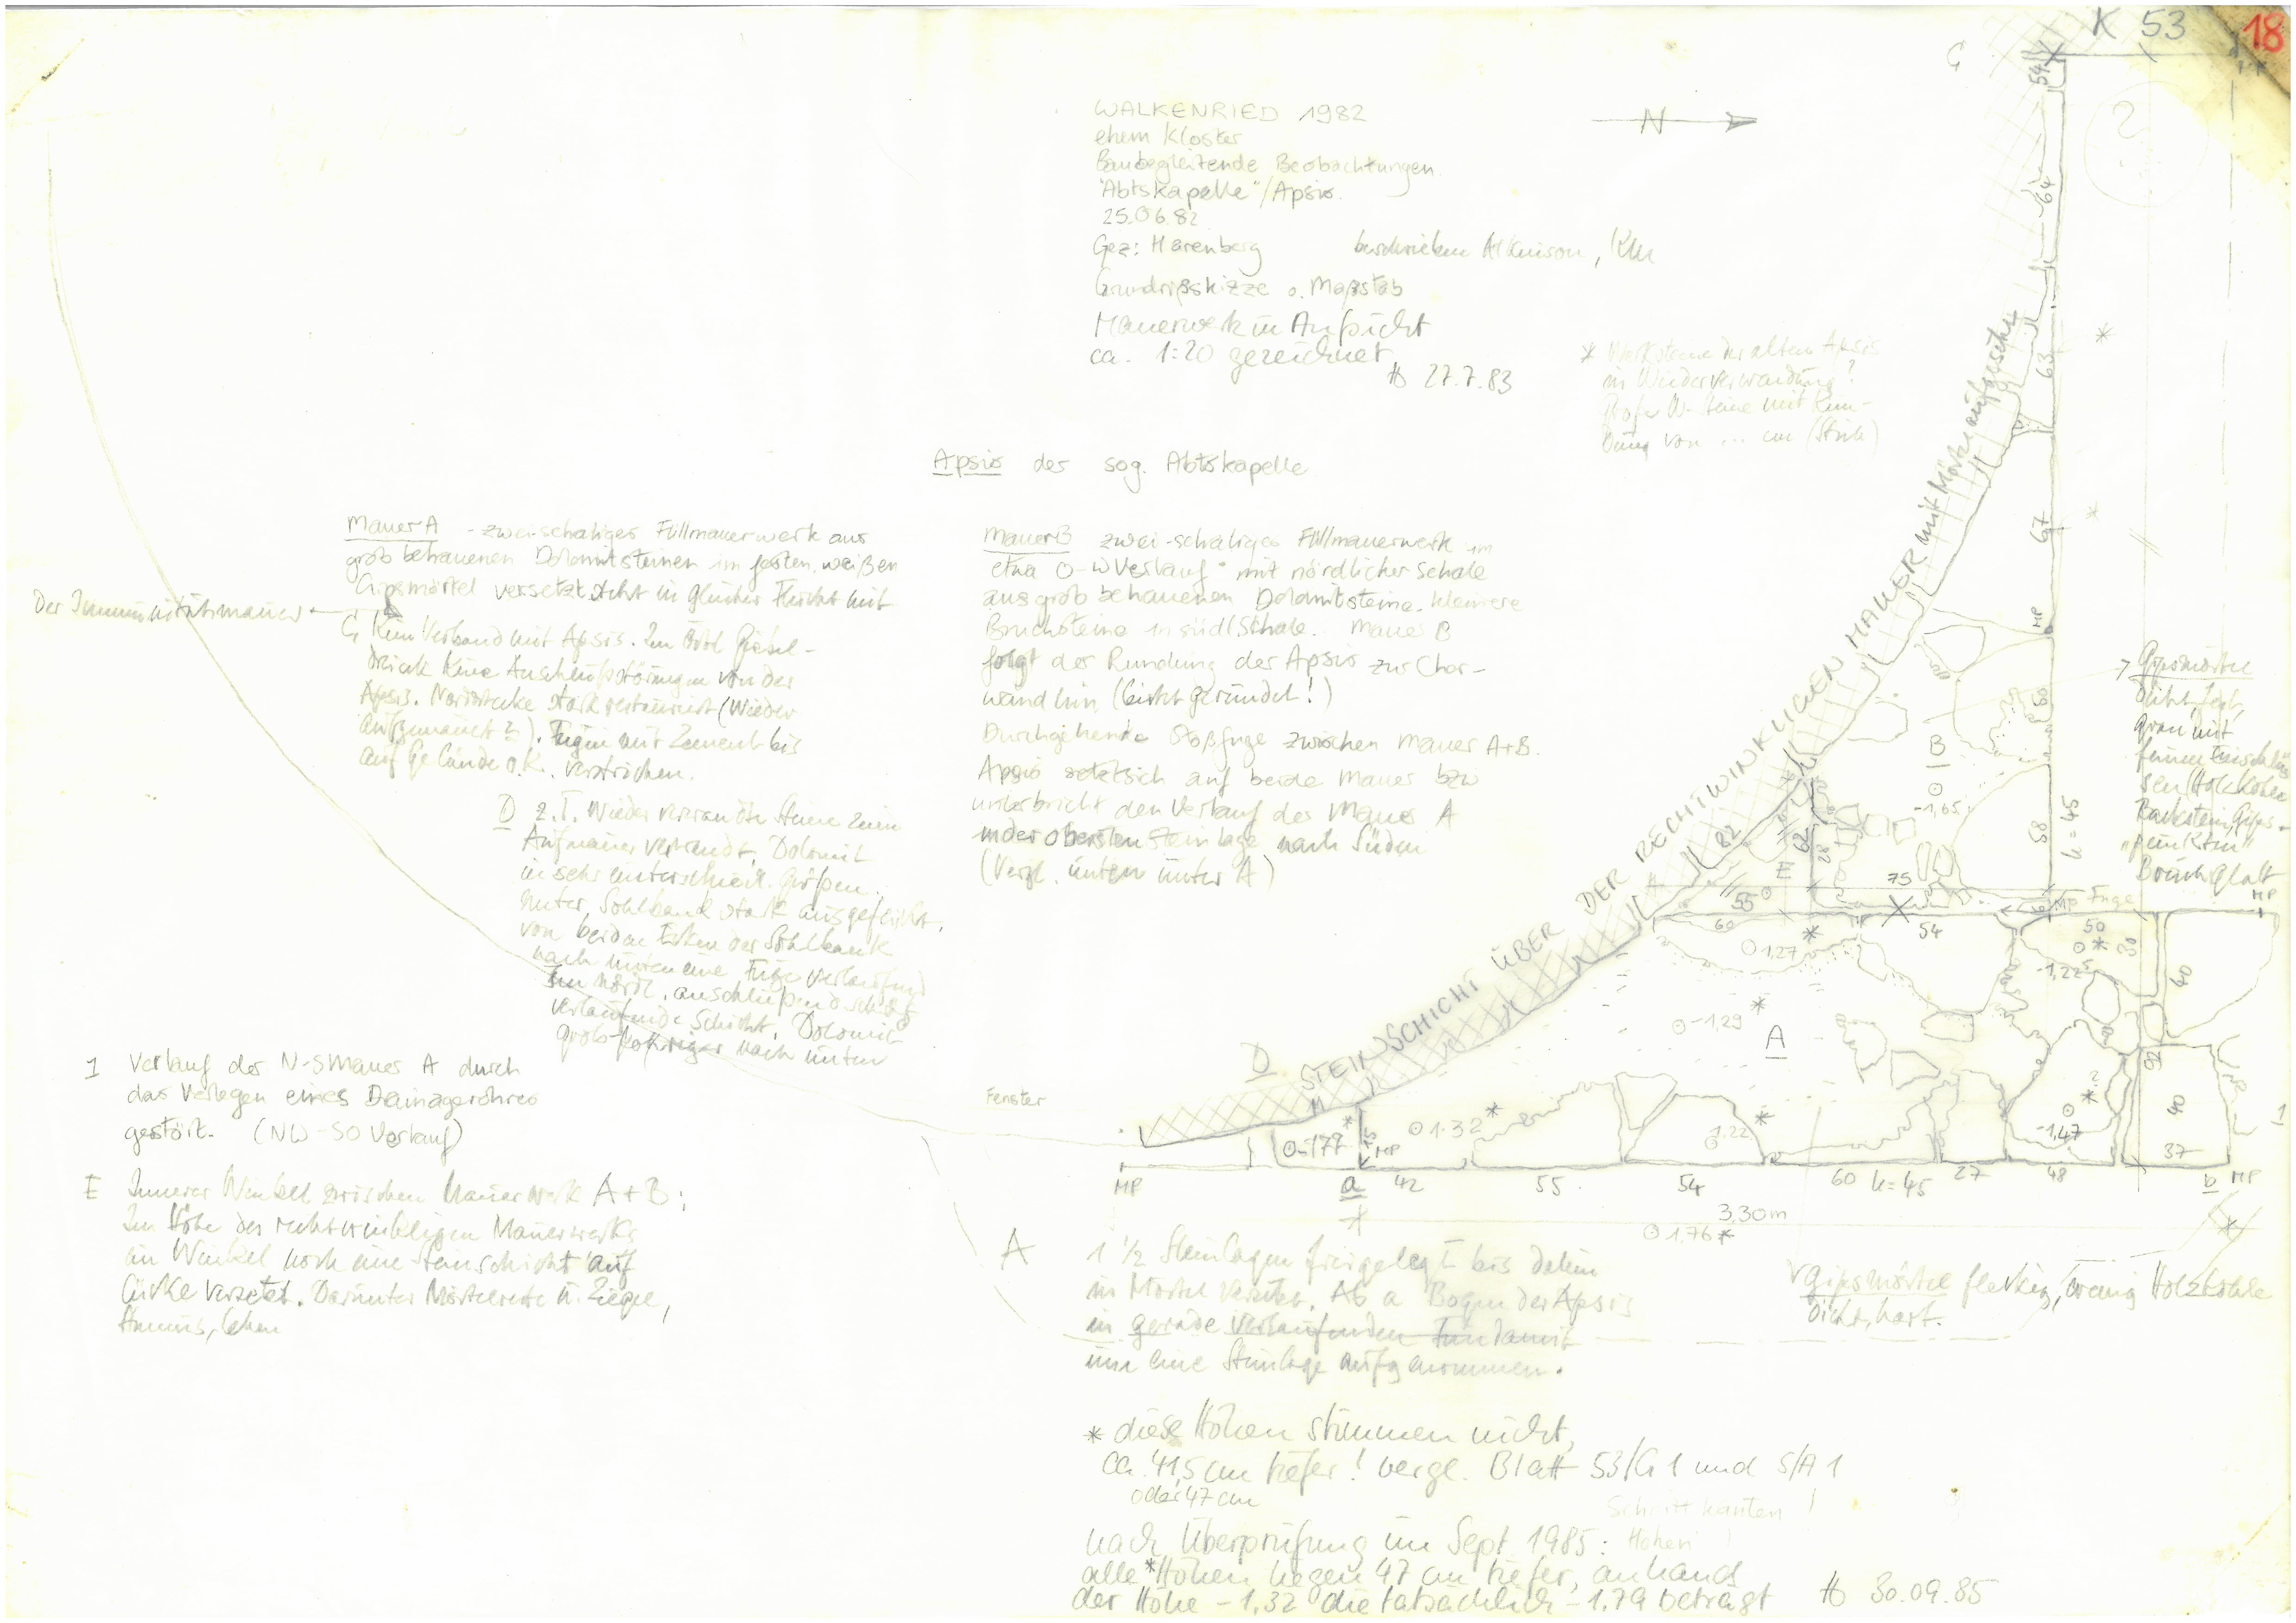 K 53
18
WALKENRIED 1982
ehem Kloster
Baubegleitende Beobachtungen
"Abtskapelle"/Apsis
25.06.82
Gez: Harenberg beschrieben Atkinson,
Grundrißskizze o. Maßstab
Mauerwerk in Aufsicht
ca. 1:20 gezeichnet
27.7.83
N
* Werksteine der alten Apsis
in Wiederverwendung?
von ... cm
Apsis der sog. Abtskapelle
Mauer A - zweischaliges Füllmauerwerk aus
grob behauenen Dolomitsteinen im festen, weißen
Gipsmörtel versetzt steht in gleicher Flucht mit
Der Immunitätsmauer
G Kein Verband mit Apsis. Im
keine von der
Apsis. Nordstecke stark restauriert (Wieder
aufgemauert?). Fugen mit Zement bis
auf Gelände o.K. verstrichen.
D z.T. Wieder Steine zum
Aufmauern verwendt, Dolomit
in sehr unterschiedl. Größen.
Unter Sohlbank stark ausgeflickt.
von beiden Ecken der Sohlbank
nach unten eine Fuge verlaufend
Im nördl. anschließend
verlaufende Schicht, Dolomit
nach unten
Mauer B zwei-schaliges Füllmauerwerk im
etwa O-W Verlauf mit nördlicher Schale
aus grob behauenen Dolomitsteine. kleinere
Bruchsteine in südl Schale. Mauer B
folgt der Rundung der Apsis zur Chor-
wand hin (leicht gerundet!)
Durchgehende Stoßfuge zwischen Mauer A+B.
Apsis setzt sich auf beide Mauer bzw
unterbricht den Verlauf der Mauer A
in der obersten Steinlage nach Süden
(Vergl. unten unter A)
1 Verlauf der N-S Mauer A durch
das Verlegen eines Drainagerohres
gestört. (NW-SO Verlauf)
E Innerer Winkel zwischen Mauerwerk A+B;
Im Höhe des rechtwinkeligen Mauerwerks
im Winkel noch eine Steinschicht auf
Lücke versetzt. Darunter Mörtelreste u. Ziegel,
Humus, Lehm
Fenster
D STEINSCHICHT ÜBER DER RECHTWINKLIGEN MAUER mit Mörtel aufgesetzt
G
54
64
63
67
MP
50
58
h=45
B
-1,65
82
62
28
E
55
75
60
54
MP Fuge
MP
50
1,27 *
-1,22 *
-1,29 *
A
40
32
40
37
1
-177 *
15
MP
1.32 *
1,22 *
-1,47 *
MP
a
42
55
54
60 h=45
27
48
b MP
3,30m
1,76 *
Gipsmörtel
dicht, fest,
grau mit
feinen Einschlüs
sen (Holzkohle
Backstein, Gips-
"punkten"
Bruch glatt
Gipsmörtel fleckig, wenig Holzkohle
dicht, hart.
A 1 ½ Steinlagen freigelegt bis dahin
in Mörtel versetzt. Ab a Bogen der Apsis
in gerade verlaufenden Fundamit
um eine Steinlage aufgenommen.
* diese Höhen stimmen nicht,
ca. 41,5 cm tiefer! vergl. Blatt 53/G1 und S/A 1
oder 47 cm
Schnittkanten !
nach Überprüfung im Sept 1985: Höhen !
alle * Höhen liegen 47 cm tiefer, anhand
der Höhe -1,32 die tatsächlich -1.79 beträgt
30.09.85